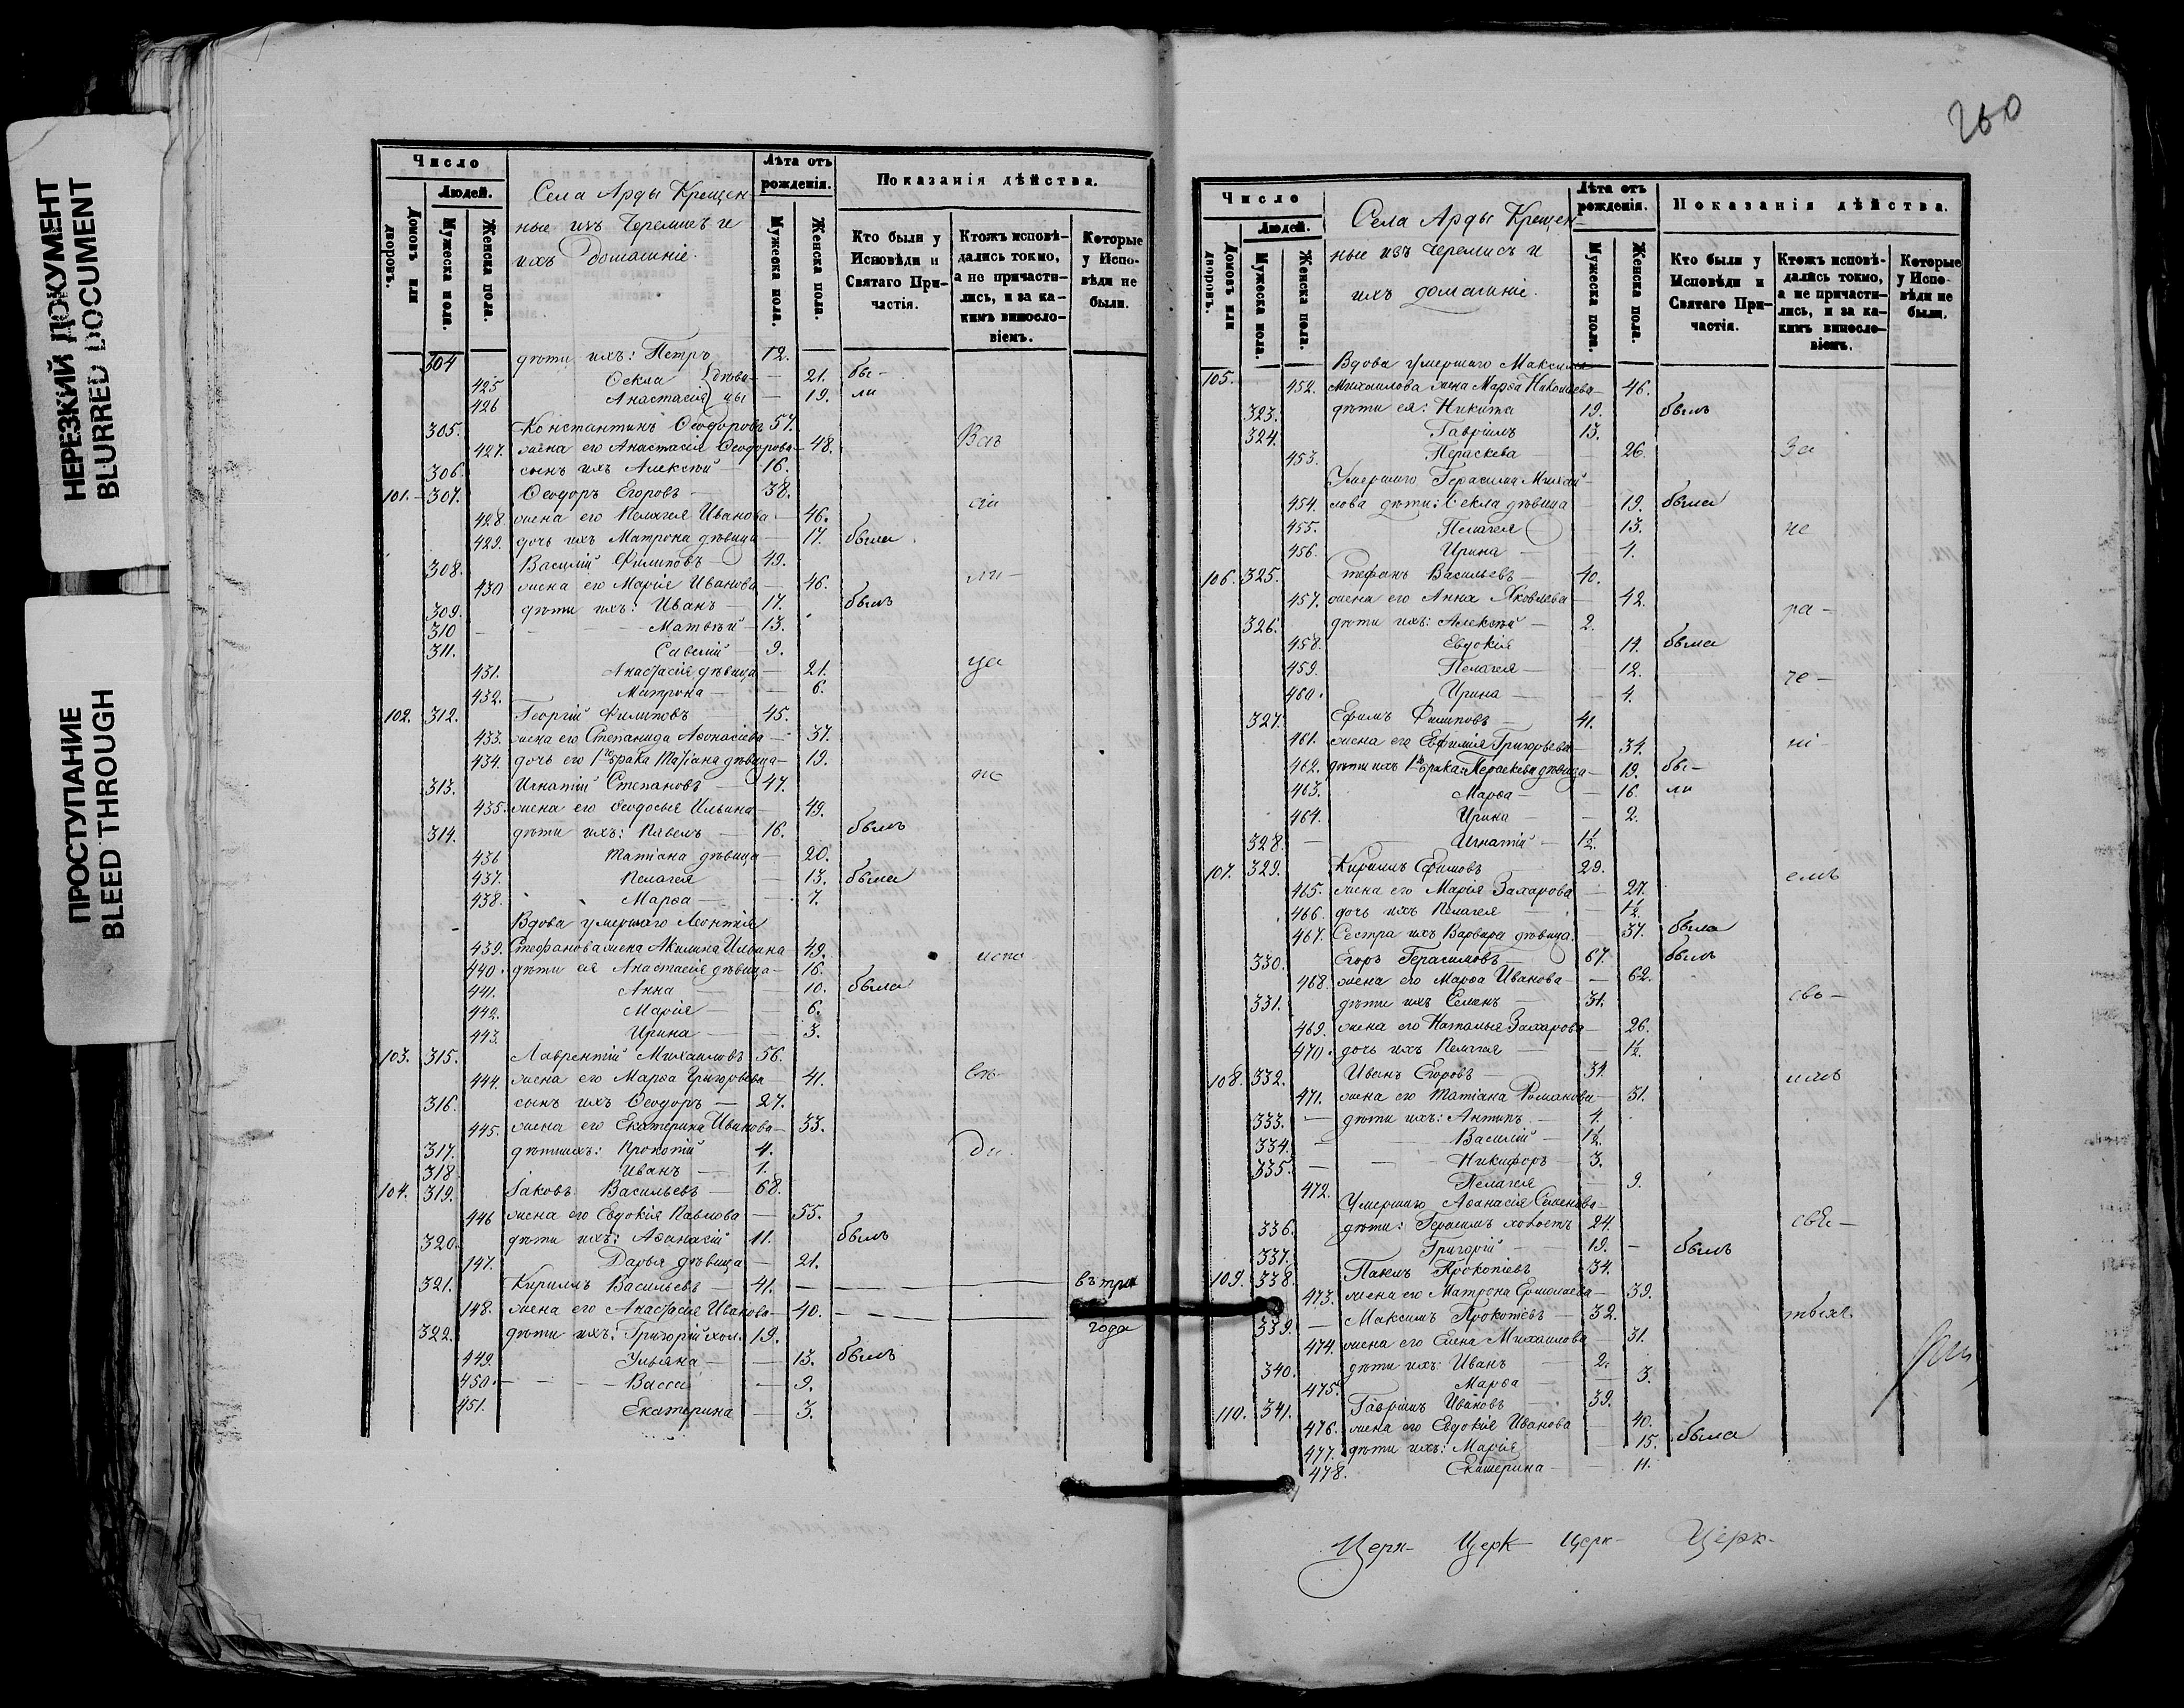 НЕРЕЗКИЙ ДОКУМЕНТ
BLURRED DOCUMENT
ПРОСТУПАНИЕ
BLEED THROUGH
260
Число
Людей.
Домовъ или дворовъ.
Мужеска пола.
Женска пола.
Села Арды Крещен-
ные изъ Черемисъ и
ихъ домашніе.
Лѣта отъ рожденія.
Мужеска пола.
Женска пола.
Показанія дѣйства.
Кто были у Исповѣди и Святаго Причастія.
Ктожъ исповѣдались токмо, а не причастились, и за какимъ винословіемъ.
Которые у Исповѣди не были.
304 дѣти ихъ: Петръ 12.
425 Ѳекла дѣви- 21. бы-
426 Анастасія цы 19. ли
305. Константинъ Ѳеодоровъ 57.
427. жена его Анастасія Ѳеодорова 48. Вас
306. сынъ ихъ Алексѣй 16.
101. 307. Ѳеодоръ Егоровъ 38.
428. жена его Пелагея Иванова 46. сіи
429. дочь ихъ Матрона дѣвица 17. была
308. Василій Филиповъ 49.
430 жена его Марія Иванова 46. ли-
309. дѣти ихъ: Иванъ 17. былъ
310 Матвѣй 13.
311. Савелій 9.
431. Анастасія дѣвица 21. ца
432. Матрона 6.
102. 312. Георгій Филиповъ 45.
433. жена его Степанида Аѳонасіева 37.
434. дочь его 1го брака Татіана дѣвица 19.
313. Игнатій Степановъ 47. не
435. жена его Ѳеодосья Ильина 49.
314. дѣти ихъ: Павелъ 16. былъ
436 Татіана дѣвица 20.
437. Пелагея 13. была
438. Марѳа 7.
Вдова умершаго Леонтія
439. Стефанова жена Акилина Ильина 49. испо
440. дѣти ея Анастасія дѣвица 16.
441. Анна 10. была
442. Марія 6.
443. Ирина 3.
103. 315. Лаврентій Михаиловъ 56.
444. жена его Марѳа Григорьева 41. вѣ
316. сынъ ихъ Ѳеодоръ 27.
445. жена его Екатерина Иванова 33.
317. дѣти ихъ: Прокопій 4. ди.
318 Иванъ 1.
104. 319. Іаковъ Васильевъ 68.
446 жена его Евдокія Павлова 55.
320. дѣти ихъ: Аѳанасій 11. былъ
147. Дарья дѣвица 21.
321. Кириллъ Васильевъ 41. въ три
148. жена его Анастасія Иванова 40. года
322. дѣти ихъ: Григорій хол. 19.
449. Ульяна 13. былъ
450. Васса 9.
451. Екатерина 3.
Число
Людей.
Домовъ или дворовъ.
Мужеска пола.
Женска пола.
Села Арды Крещен-
ные изъ Черемисъ и
ихъ домашніе.
Лѣта отъ рожденія.
Мужеска пола.
Женска пола.
Показанія дѣйства.
Кто были у Исповѣди и Святаго Причастія.
Ктожъ исповѣдались токмо, а не причастились, и за какимъ винословіемъ.
Которые у Исповѣди не были.
Вдова умершаго Максима
105. 452. Михаилова жена Марѳа Николаева 46.
323. дѣти ея: Никита 19. былъ
324. Гавріилъ 13.
453. Параскева 26. За
Умершаго Герасима Михай-
454. лова дѣти: Ѳекла дѣвица 19. была
455. Пелагея 13. не
456. Ирина 4.
106. 325. Стефанъ Васильевъ 40.
457. жена его Анна Яковлева 42. ра-
326. дѣти ихъ: Алексѣй 2.
458. Евдокія 14. была
459. Пелагея 12. че-
460. Ирина 4.
327. Ефимъ Филиповъ 41.
461. жена его Евфимія Григорьева 34. ні-
462. дѣти ихъ 1го брака: Параскева дѣвица 19. бы-
463. Марѳа 16. ли
464. Ирина 2.
328. Игнатій 1½.
107. 329. Кириллъ Ефимовъ 29. емъ
465. жена его Марія Захарова 27.
466. дочь ихъ Пелагея 1½.
467. Сестра ихъ Варвара дѣвица. 37. была
330. Егоръ Герасимовъ 67. былъ
468. жена его Марѳа Иванова 62.
331. дѣти ихъ Семенъ 31. сво-
469. жена его Наталья Захарова 26.
470. дочь ихъ Пелагея 1½.
108. 332. Иванъ Егоровъ 34. имъ
471. жена его Татіана Романова 31.
333. дѣти ихъ: Антипъ 4.
334. Василій 1½.
335. Никифоръ 3.
472. Пелагея 9.
Умершаго Аѳанасія Семенова
336. дѣти: Герасимъ холостъ 24.
337. Григорій 19. былъ
109. 338. Павелъ Прокопіевъ 34.
473. жена его Матрона Ермолаева 39.
339. Максимъ Прокопіевъ 32.
474. жена его Елена Михаилова 31.
340. дѣти ихъ: Иванъ 2.
475. Марѳа 3.
110. 341. Гавріилъ Ивановъ 39.
476. жена его Евдокія Иванова 40.
477. дѣти ихъ: Марія 15. была
478. Екатерина 11.
Церк- Церк- Церк- Церк-